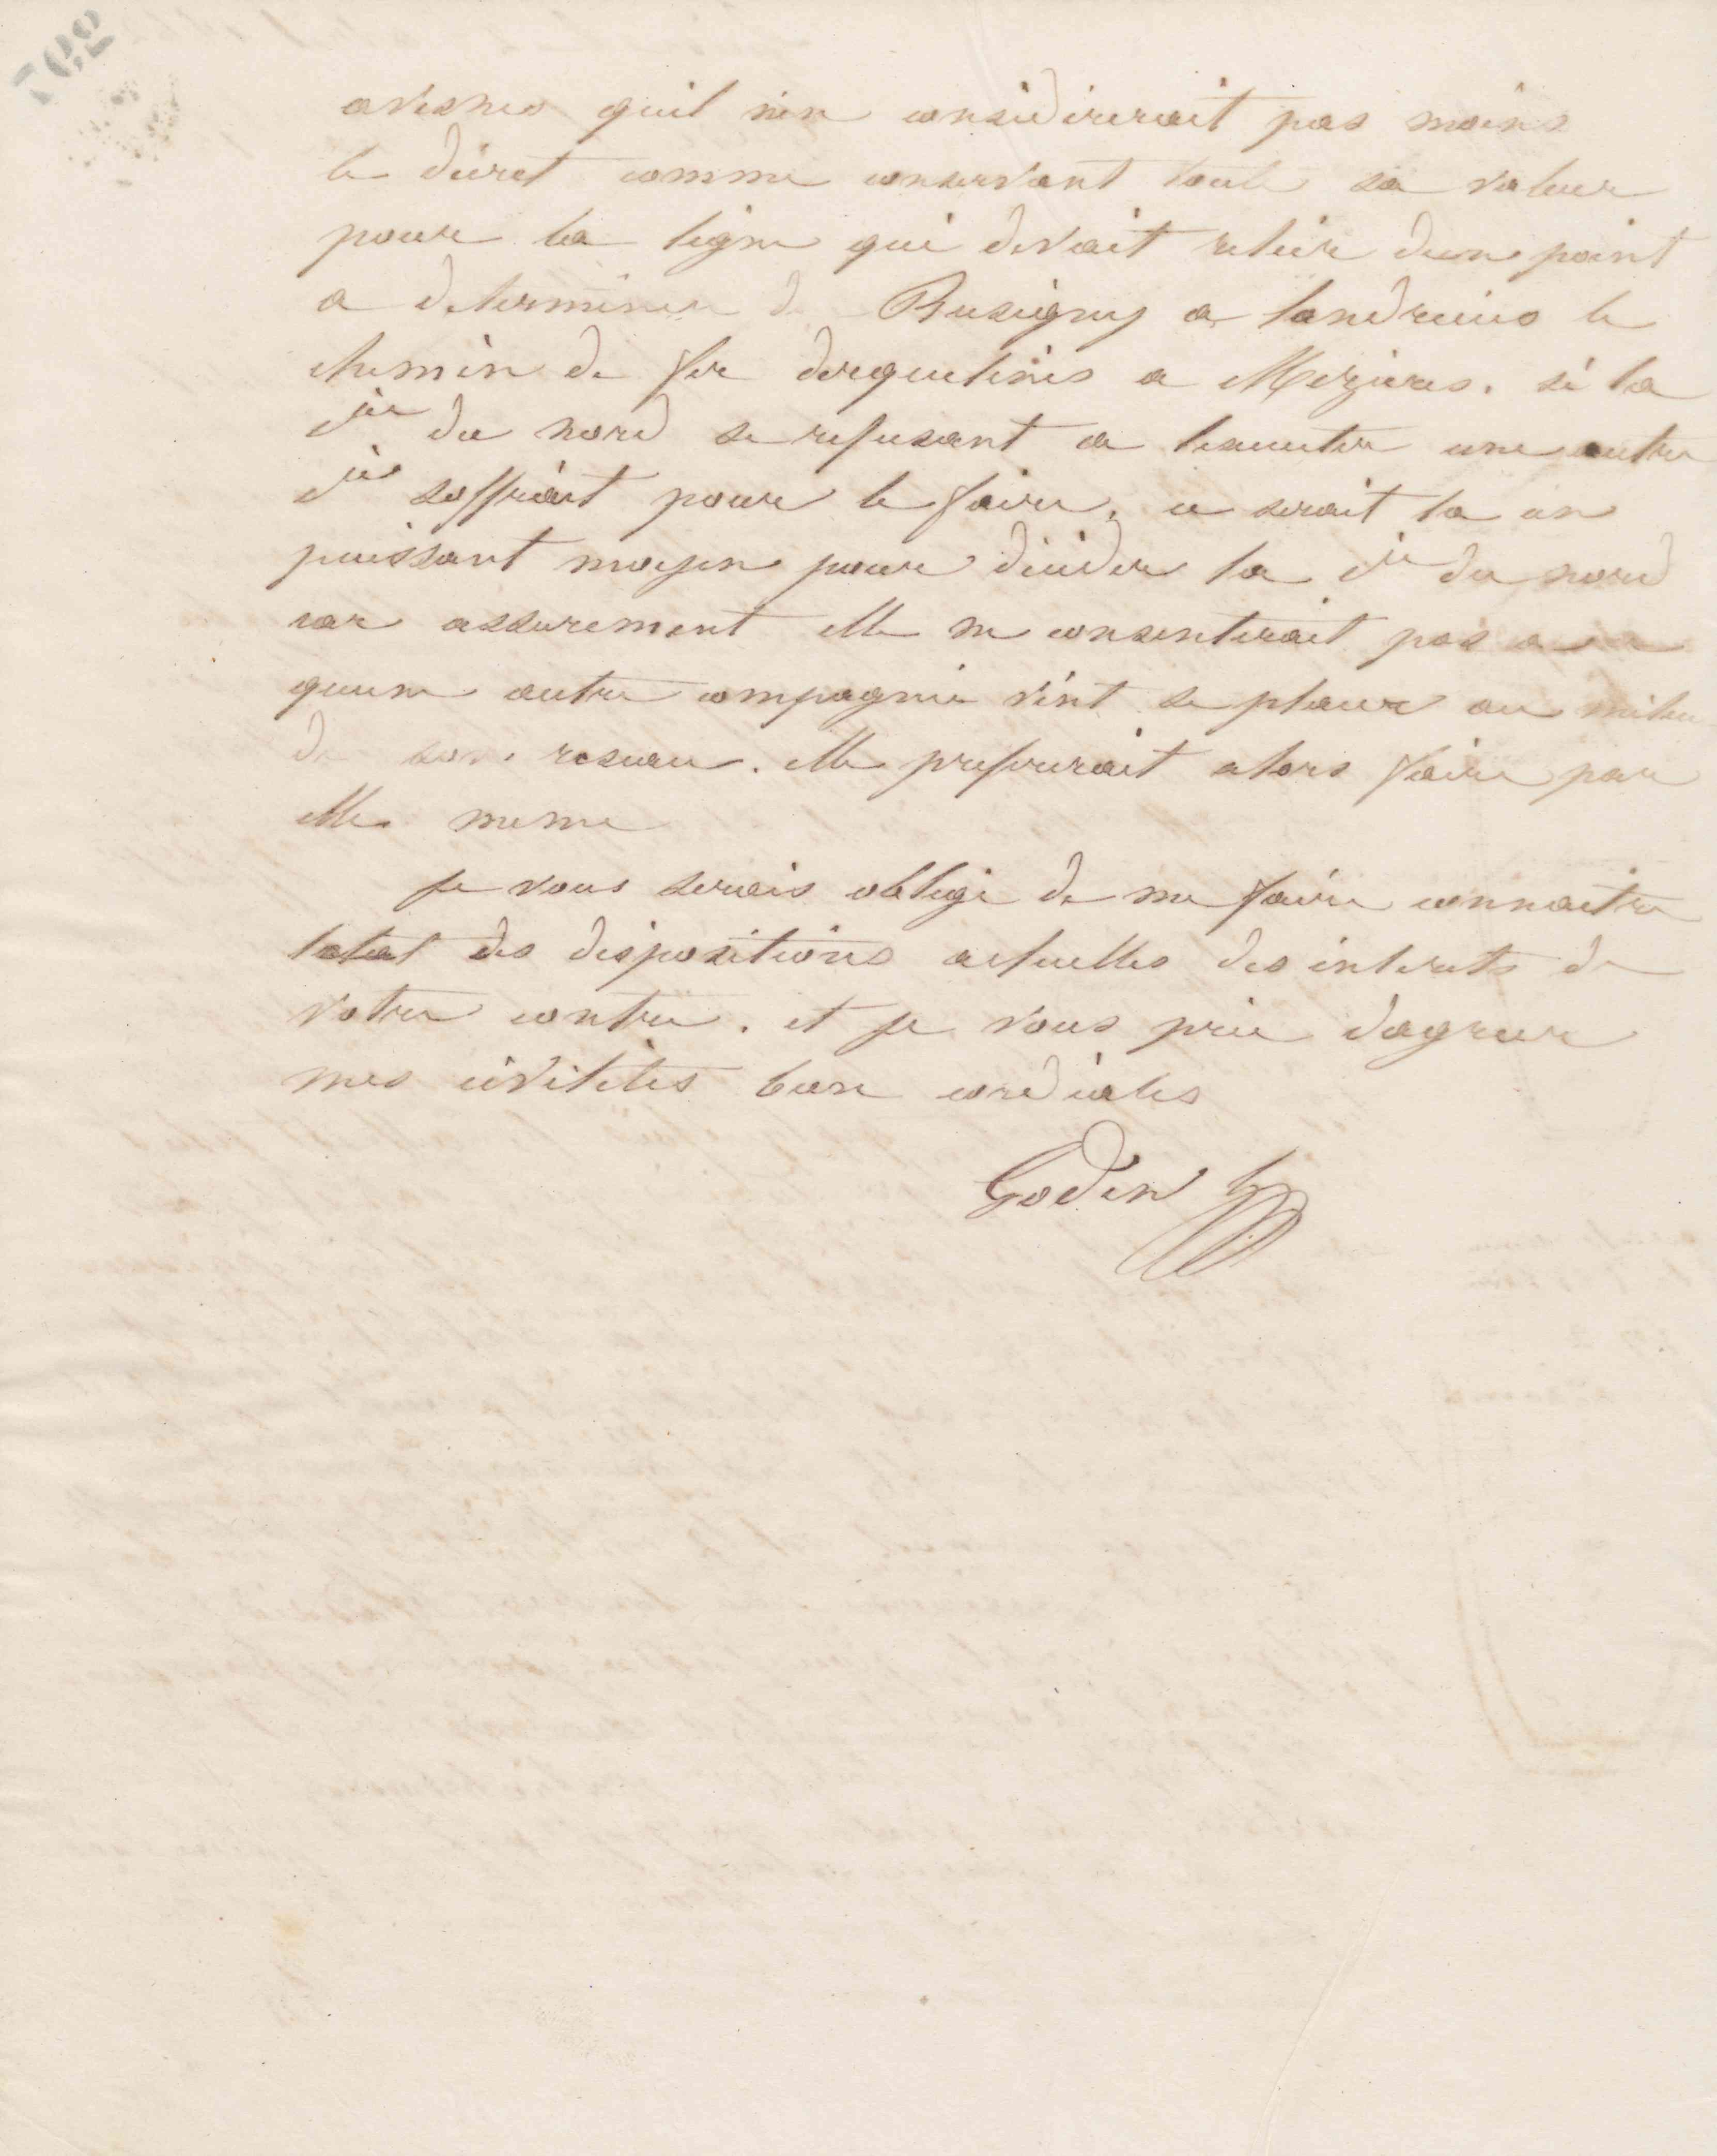 avesnes quil n'en considererait pas moins
le décret comme conservant toute sa valeur
pour la ligne qui devait relier dun point
a determiner de Busigny a landrecies le
chemin de fer d'erquelines a Mezieres. si la
Cie du nord se refusant a lexecuter une autre
Cie soffrait pour le faire, ce serait la un
puissant moyen pour décider la Cie du nord
car assurement elle ne consentirait pas a ce
quune autre compagnie vint se placer au milieu
de son reseau. elle prefererait alors faire par
elle meme
je vous serais obligé de me faire connaitre
letat des dispositions actuelles des interets de
votre contree. et je vous prie dagreer
mes civilités bien cordiales
Godin